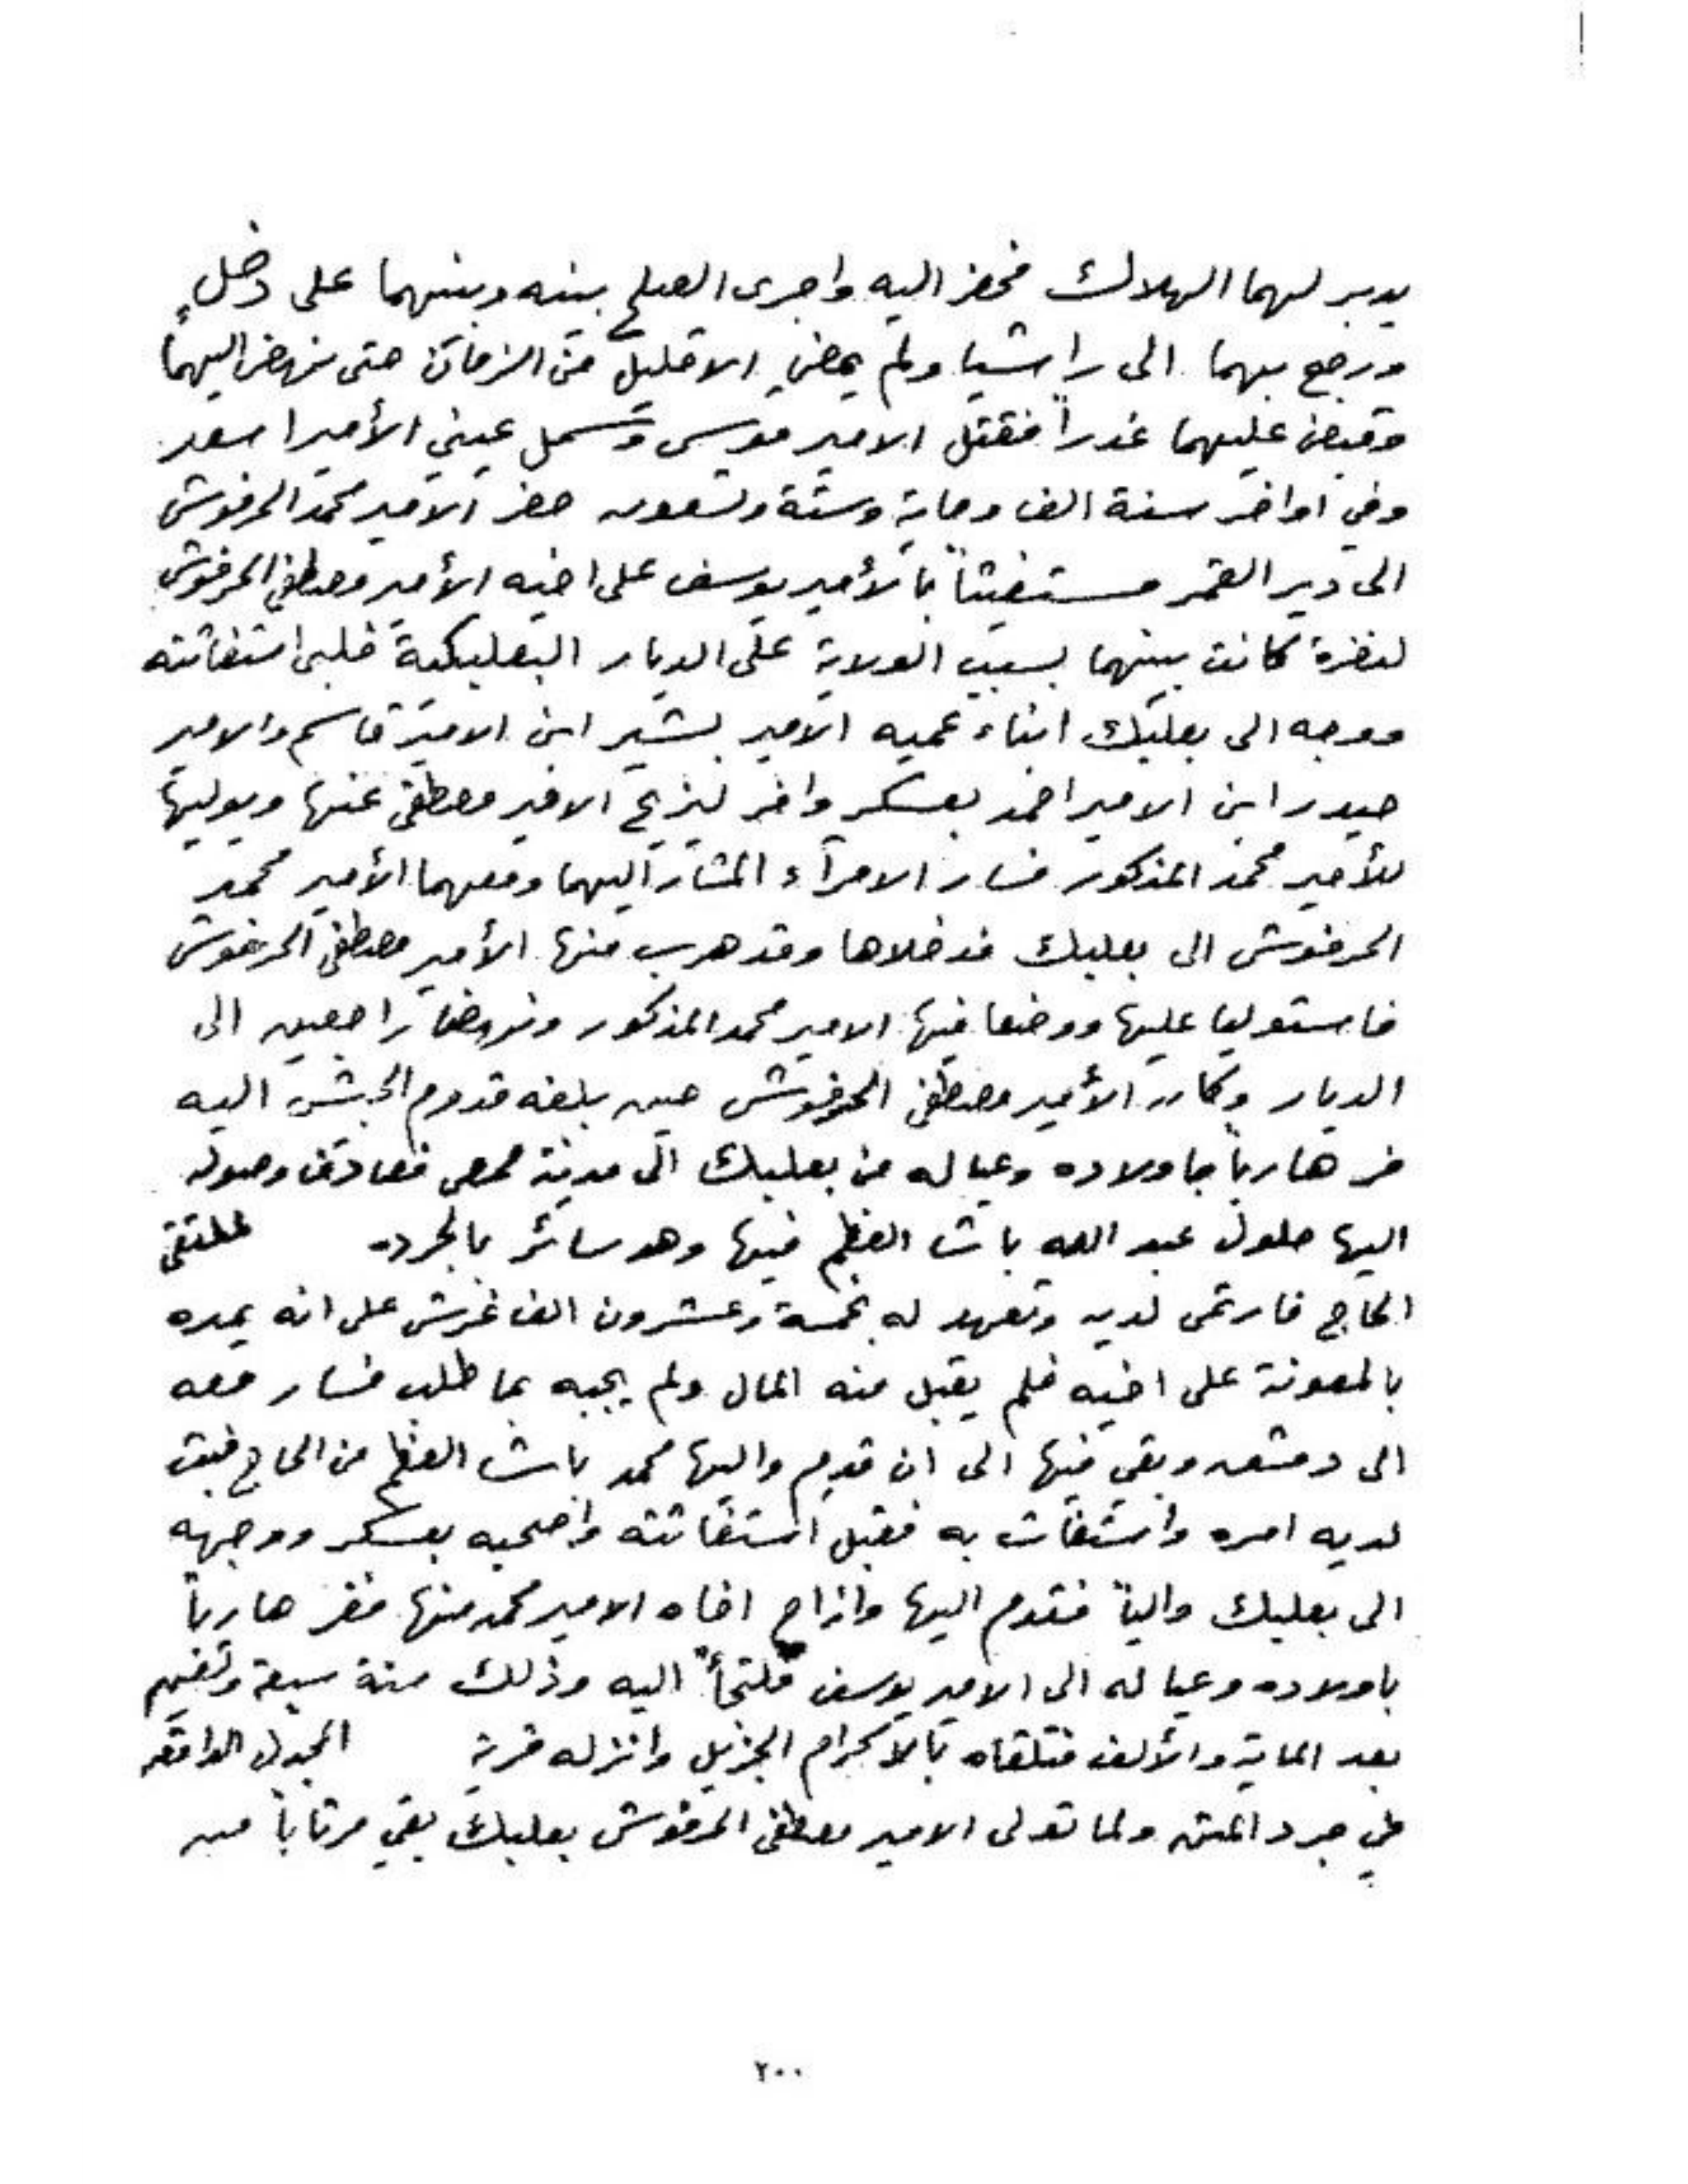 يدبر لهما الهلاك فحضر اليه واجرى الصلح بينه وبينهما على دخلٍ
ورجع بهما الى راشيا ولم يمضِ الا قليل من الزمان حتى نهض اليهما
وقبض عليهما غدراً فقتل الامير موسى وسمل عيني الأمير اسعد
وفي اواخر سنة الف وماية وستة وتسعون حضر الامير محمد الحرفوش
الى دير القمر مستغيثاً بالأمير يوسف على اخيه الأمير مصطفى الحرفوش
لنفرة كانت بينهما بسبب الولاية على الديار البعلبكية فلبى استغاثته
ووجه الى بعلبك ابناء عميه الامير بشير ابن الامير قاسم والامير
حيدر ابن الامير احمد بعسكر وافر ليزيح الامير مصطفى عنها ويوليها
للأمير محمد المذكور فسار الامرآء المشار اليهما ومعهما الأمير محمد
الحرفوش الى بعلبك فدخلاها وقد هرب منها الأمير مصطفى الحرفوش
فاستوليا عليها ووضعا فيها الامير محمد المذكور ونهضا راجعين الى
الديار وكان الأمير مصطفى الحرفوش حين بلغه قدوم الجيش اليه
فر هارباً باولاده وعياله من بعلبك الى مدينة حمص فصادف وصوله
اليها حلول عبد الله باشا العظم فيها وهو سائر بالجرده لملتقى
الحاج فارتمى لديه وتعهد له بخمسة وعشرون الف غرش على انه يمده
بالمعونة على اخيه فلم يقبل منه المال ولم يجبه بما طلب فسار معه
الى دمشق وبقي فيها الى ان قدم واليها محمد باشا العظم من الحاج فبث
لديه امره واستغاث به فقبل استغاثته واصحبه بعسكر ووجهه
الى بعلبك والياً فتقدم اليها وازاح اخاه الامير محمد منها ففر هارباً
باولاده وعياله الى الامير يوسف ملتجأً اليه وذلك سنة سبعة وتسعين
بعد الماية والألف فتلقاه بالاكرام الجزيل وانزله قرية المجدل الواقعه
في جرد المتن ولما تولى الامير مصطفى الحرفوش بعلبك بقي مرتاباً من
٢٠٠